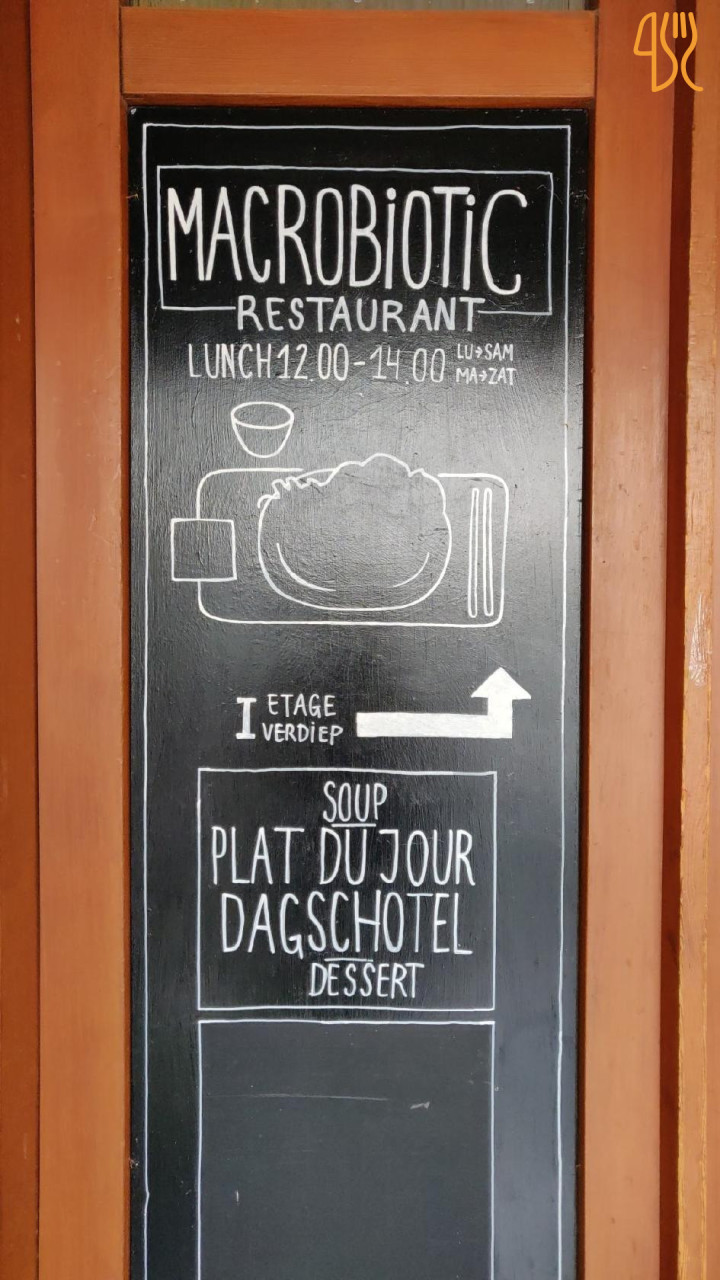 MACROBiOTiC
RESTAURANT
LUNCH 12.00-14.00 LU→SAM
MA→ZAT
I ETAGE
VERDiEP
SOUP
PLAT DU JOUR
DAGSCHOTEL
DESSERT